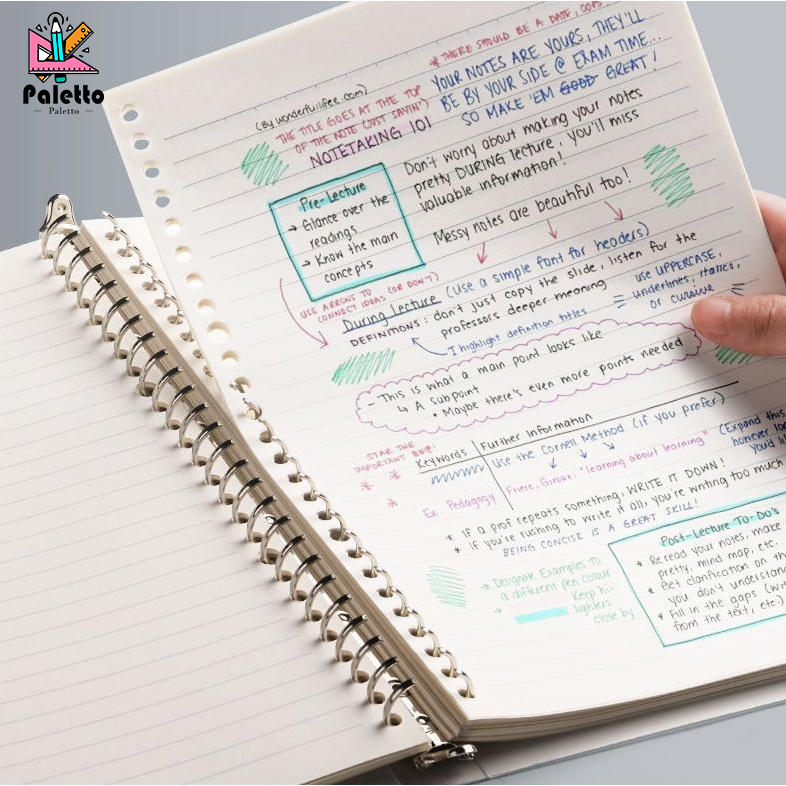 Paletto
Paletto
* THERE SHOULD BE A DATE, OOPS
YOUR NOTES ARE YOURS, THEY'LL
BE BY YOUR SIDE @ EXAM TIME...
SO MAKE 'EM GOOD GREAT!
(By wonderfullifee.com)
THE TITLE GOES AT THE TOP
OF THE NOTE (JUST SAYIN')
NOTETAKING 101
Don't worry about making your notes
pretty DURING lecture, you'll miss
valuable information!
Pre-Lecture
→ Glance over the
readings
→ Know the main
concepts
Messy notes are beautiful too!
USE ARROWS TO
CONNECT IDEAS (OR DON'T)
During lecture (Use a simple font for headers)
DEFINITIONS: don't just copy the slide, listen for the
professors deeper meaning
I highlight definition titles
use UPPERCASE,
underlines, italics,
or cursive
- This is what a main point looks like
↳ A subpoint
• Maybe there's even more points needed
STAR THE
IMPORTANT
Keywords
Further information
Use the Cornell Method (if you prefer)
(Expand this
however
you'd
Ex. Pedagogy
Friere, Giroux: "learning about learning"
* If a prof repeats something, WRITE IT DOWN!
* If you're rushing to write it all, you're writing too much
BEING CONCISE IS A GREAT SKILL!
→ Designate Examples to
a different pen colour
→ Keep hi-
lighters
close by
Post-Lecture To-Do's
* Reread your notes, make
pretty, mind map, etc.
* Get clarification on
you don't understand
* Fill in the gaps
from the text, etc.)